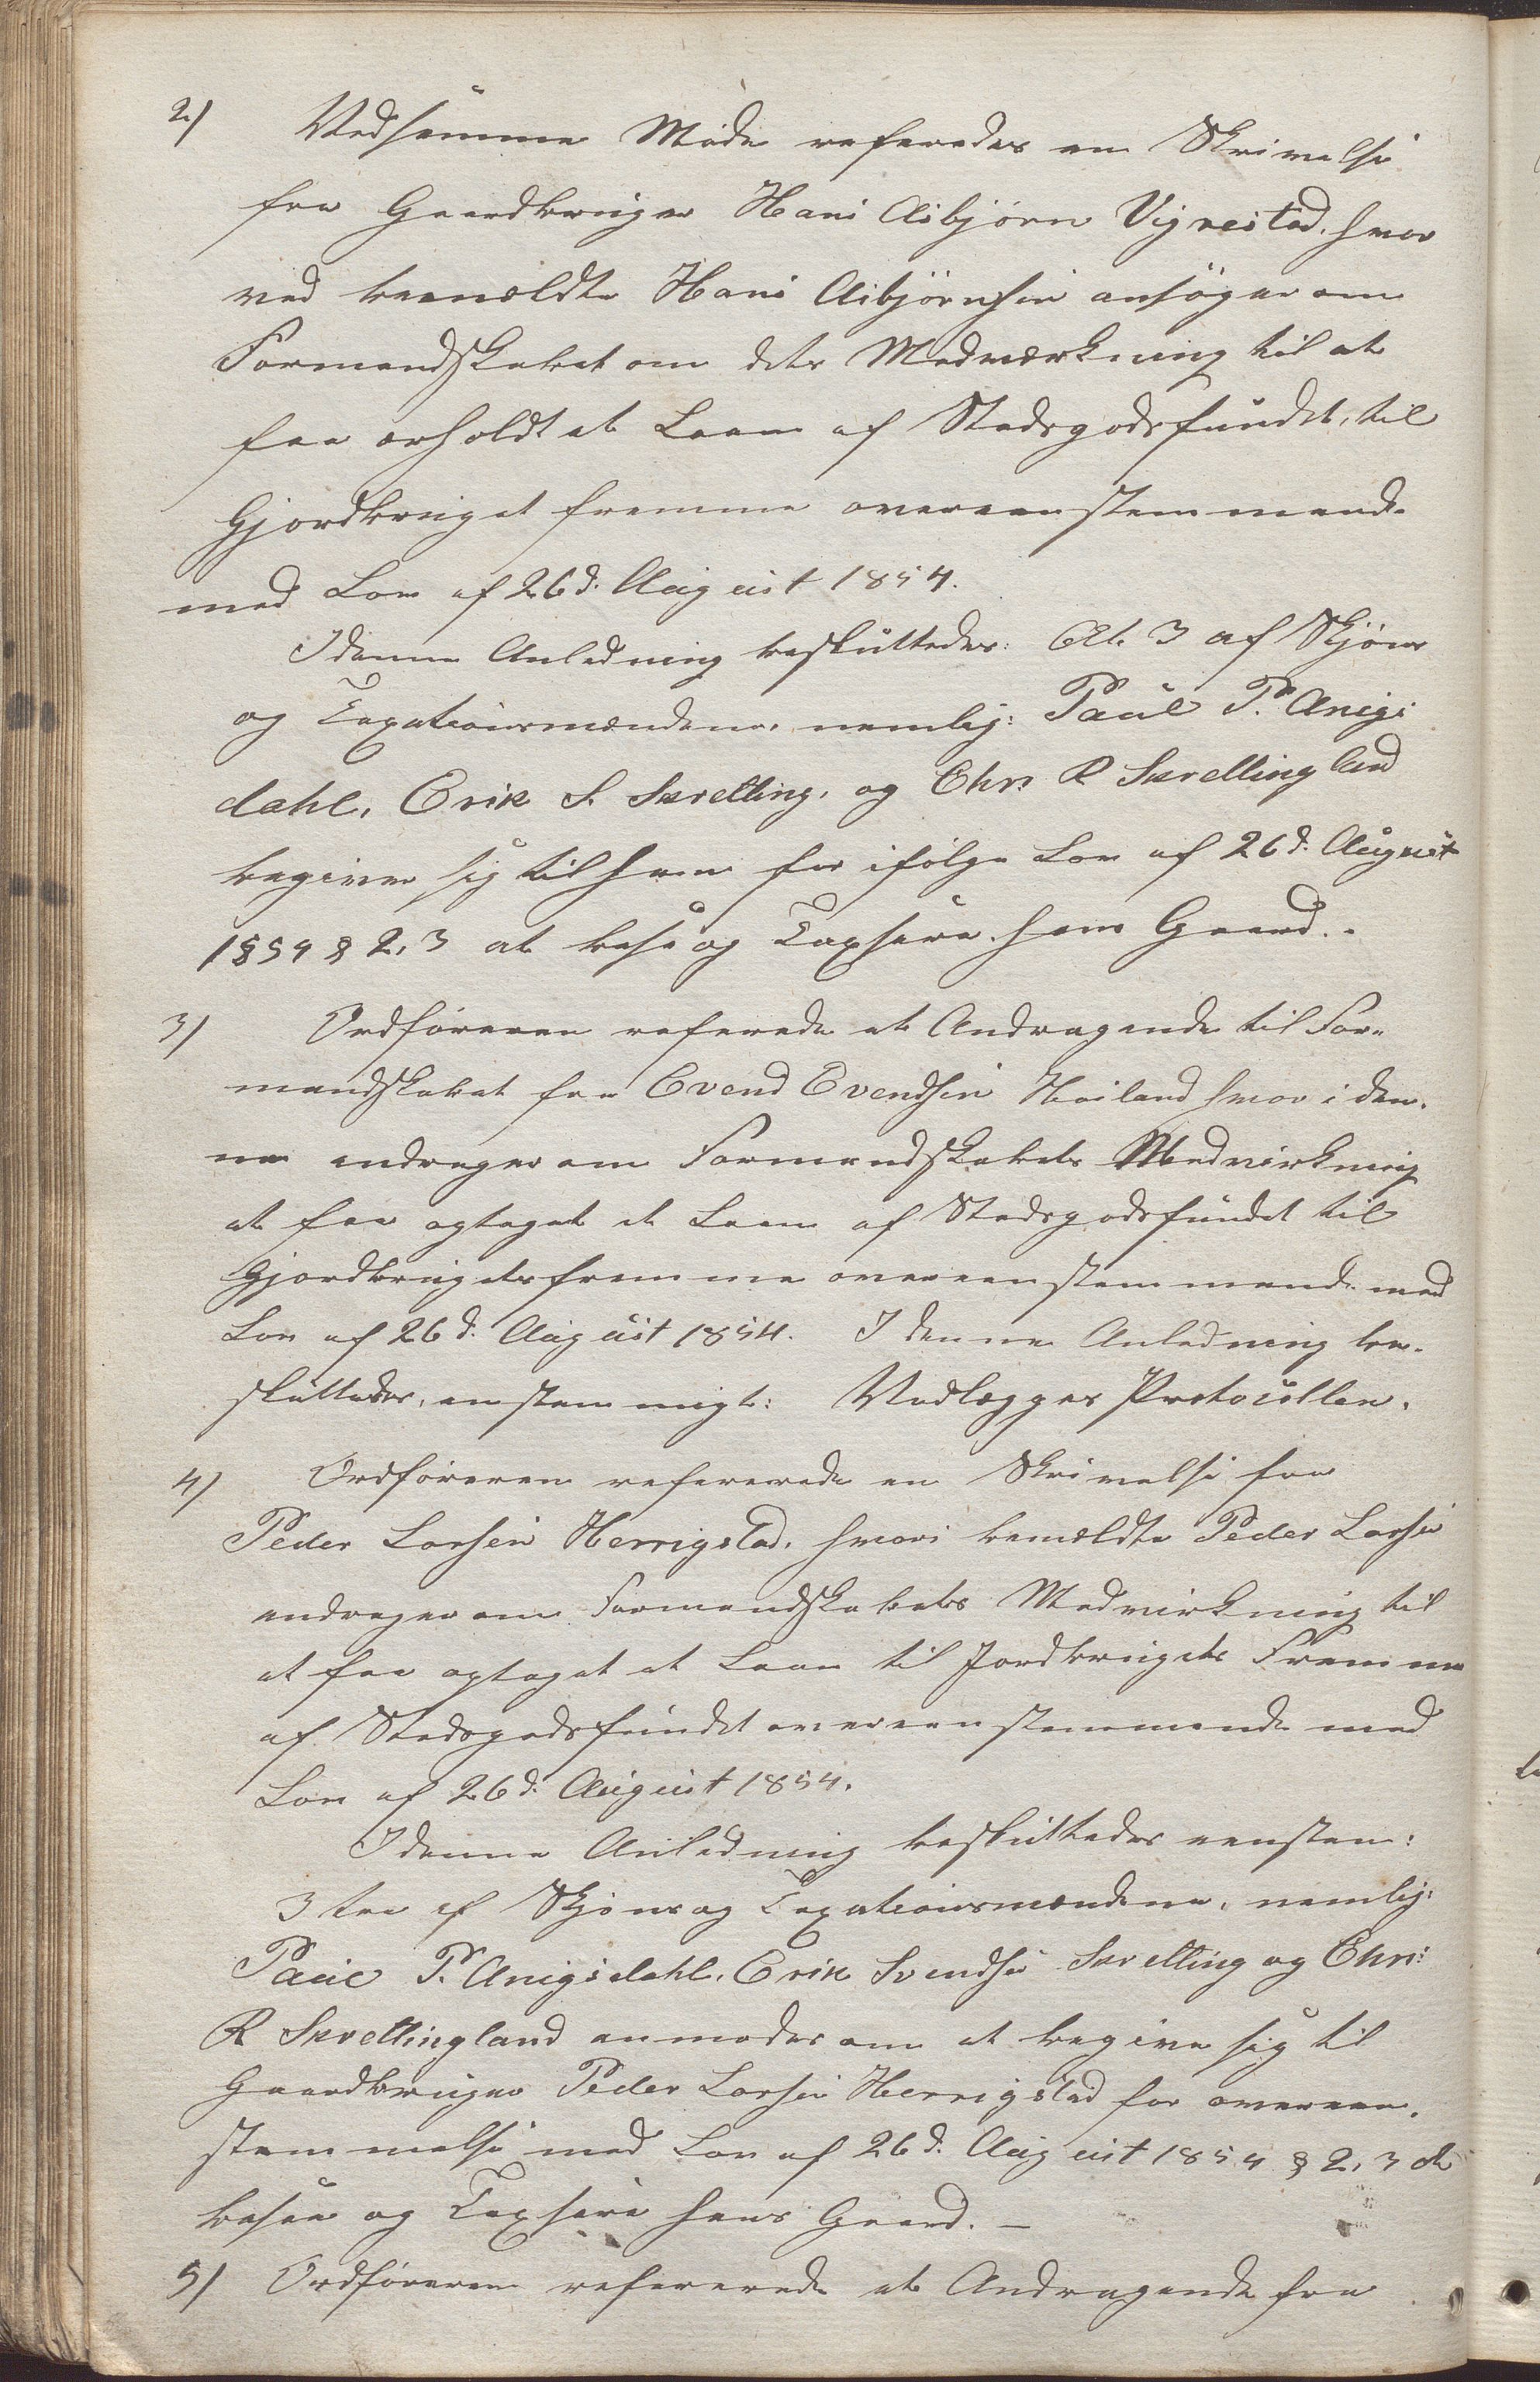 2/ Vedsamme Møde referedes en Skrivelse
fra Gaardbruger Hans Asbjørn Vigrestad, hvor
ved bemældte Hans Asbjørnsen ansøger om
Formandskabet om dets Medværkning til at
faa erholdt et Laan af Stadsgodsfundet, til
Gjordbruget fremme overeenstemmende
med Lov af 26d. August 1854.
Idenne Anledning besluttedes: At 3 af Skjøns
og Taxationsmændene, nemlig: Paul P. Anigs
dahl, Erik S. Skretting, og Chr. R Skrettingland
begiver sig til ham for ifølge Lov af 26d. August
1854 § 2, 3 at bese og Taxsere hans Gaard. -
3/ Ordføreren referede et Andragende til For-
mandskabet fra Evend Evendsen Høiland hvor i den-
ne andrager om Formandskabets Medvirkning
at faa optaget et Laan af Stadsgodsfundet til
Gjordbrugets fremme overeenstemmende med
Lov af 26d. August 1854. I denne Anledning be-
sluttedes, enstemmigt: Vedlægges Protocollen.
4/ Ordføreren refererede en Skrivelse fra
Peder Larsen Herrigstad, hvori bemældte Peder Larsen
andrager om Formandskabets Medvirkning til
at faa optaget et Laan til Jordbrugets Fremme
af Stadsgodsfundet overeenstemmende med
Lov af 26d. August 1854.
Idenne Anledning besluttedes eenstem:
3 tre af Skjøns og Taxationsmændene, nemlig:
Paul P. Anigsdahl, Erik Svendsen Skretting og Chr:
R Skrettingland anmodes om at begive sig til
Gaardbruger Peder Larsen Herrigstad forovereen-
stemmelse med Lov af 26d. August 1854 § 2, 3 at
besee og Taxsere hans Gaard. -
5/ Ordføreren refererede et Andragende fra